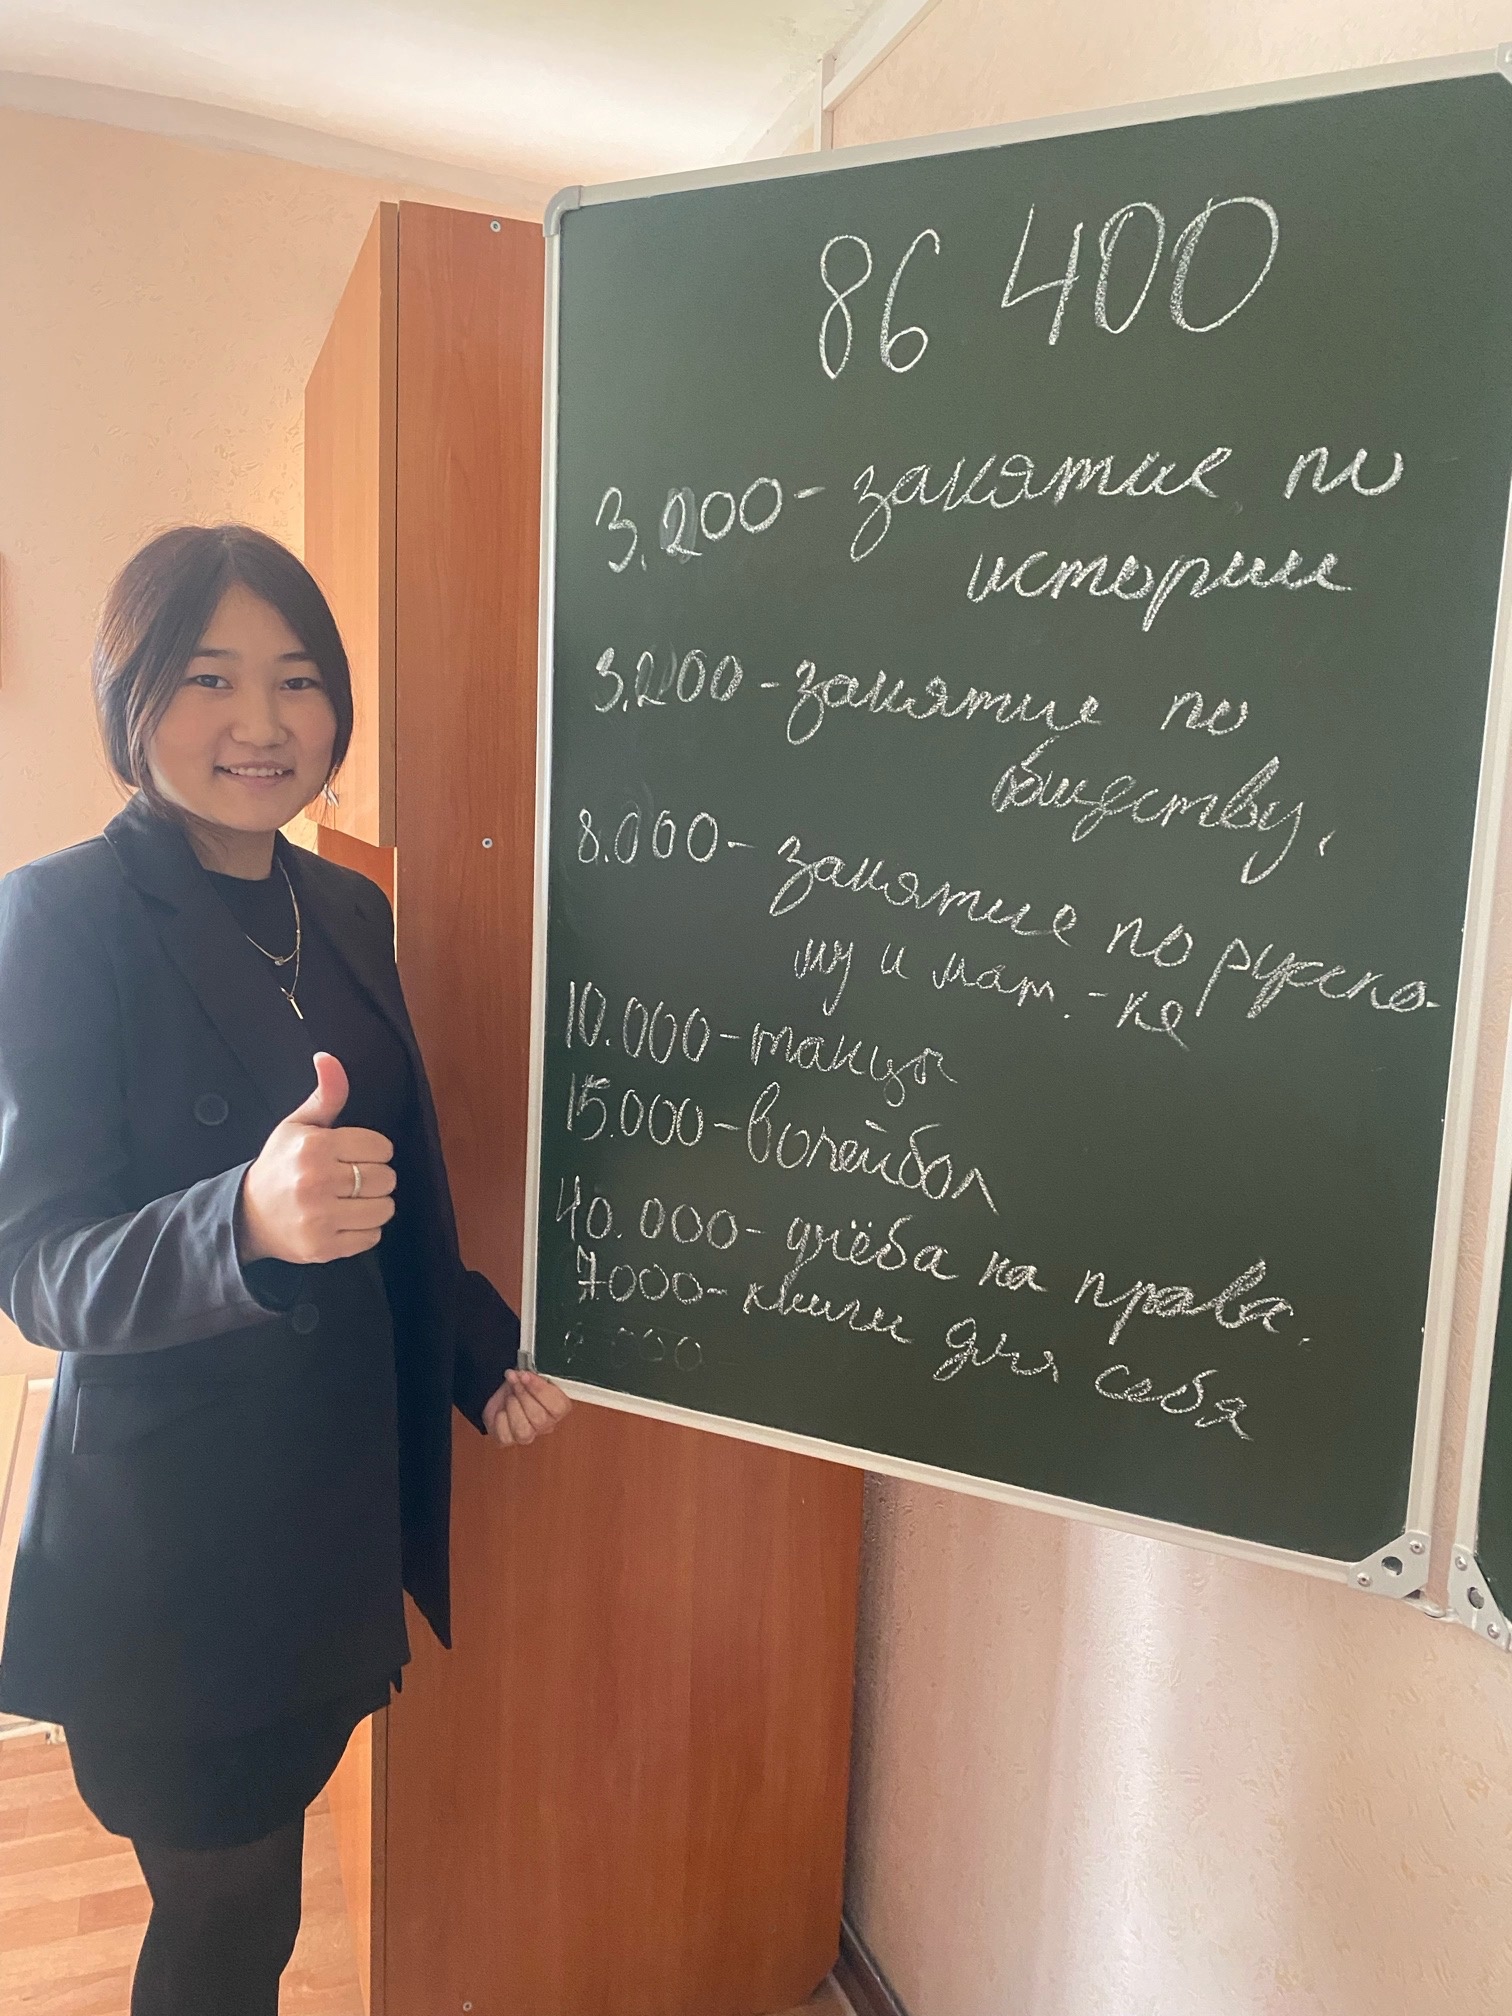 86 400
3.200 - занятие по
истории
3.200 - занятие по
обществу,
8.000 - занятие по русско-
му и мат.-ке
10.000 - танцы
15.000 - волейбол
40.000 - учёба на права.
7000 - книги для себя